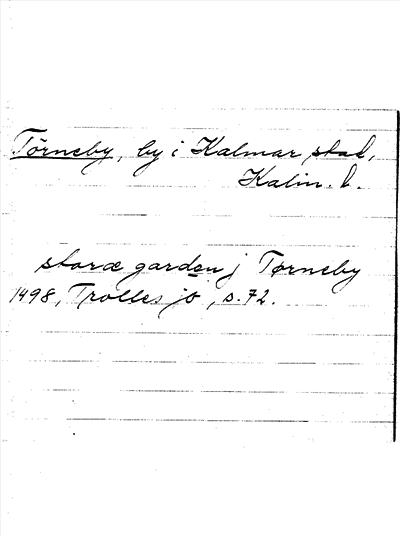 Törneby, by i Kalmar stad,
Kalm. l.
storæ garden j Tørneby
1498, Trolles jb, s. 72.